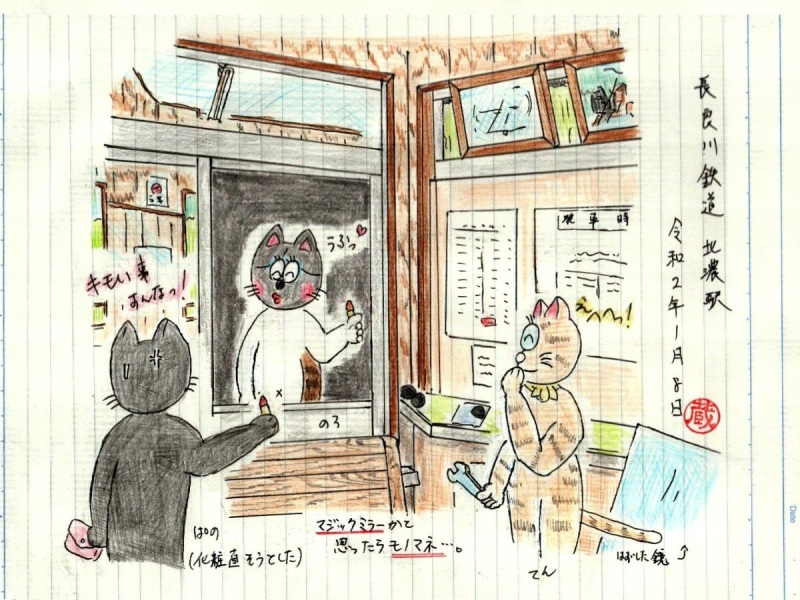 長良川鉄道 北濃駅
令和2年1月8日
蔵
発車時
うふっ
キモい事
すんなっ!
えへへっ!
のろ
ぱの
(化粧直そうとした)
マジックミラーかと
思ったらモノマネ…。
てん
はがした鏡
Date